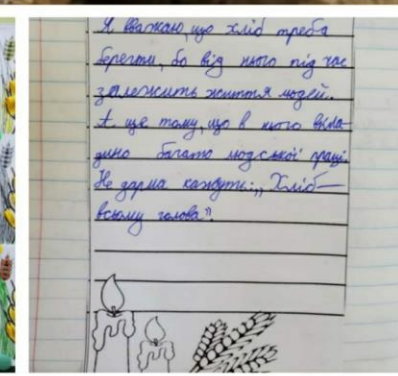 Я вважаю, що хліб треба
берегти, бо від нього під час
залежить життя людей.
А ще тому, що в нього вкла-
дено багато людської праці.
Не зарма кажуть: „Хліб—
всьому голова".